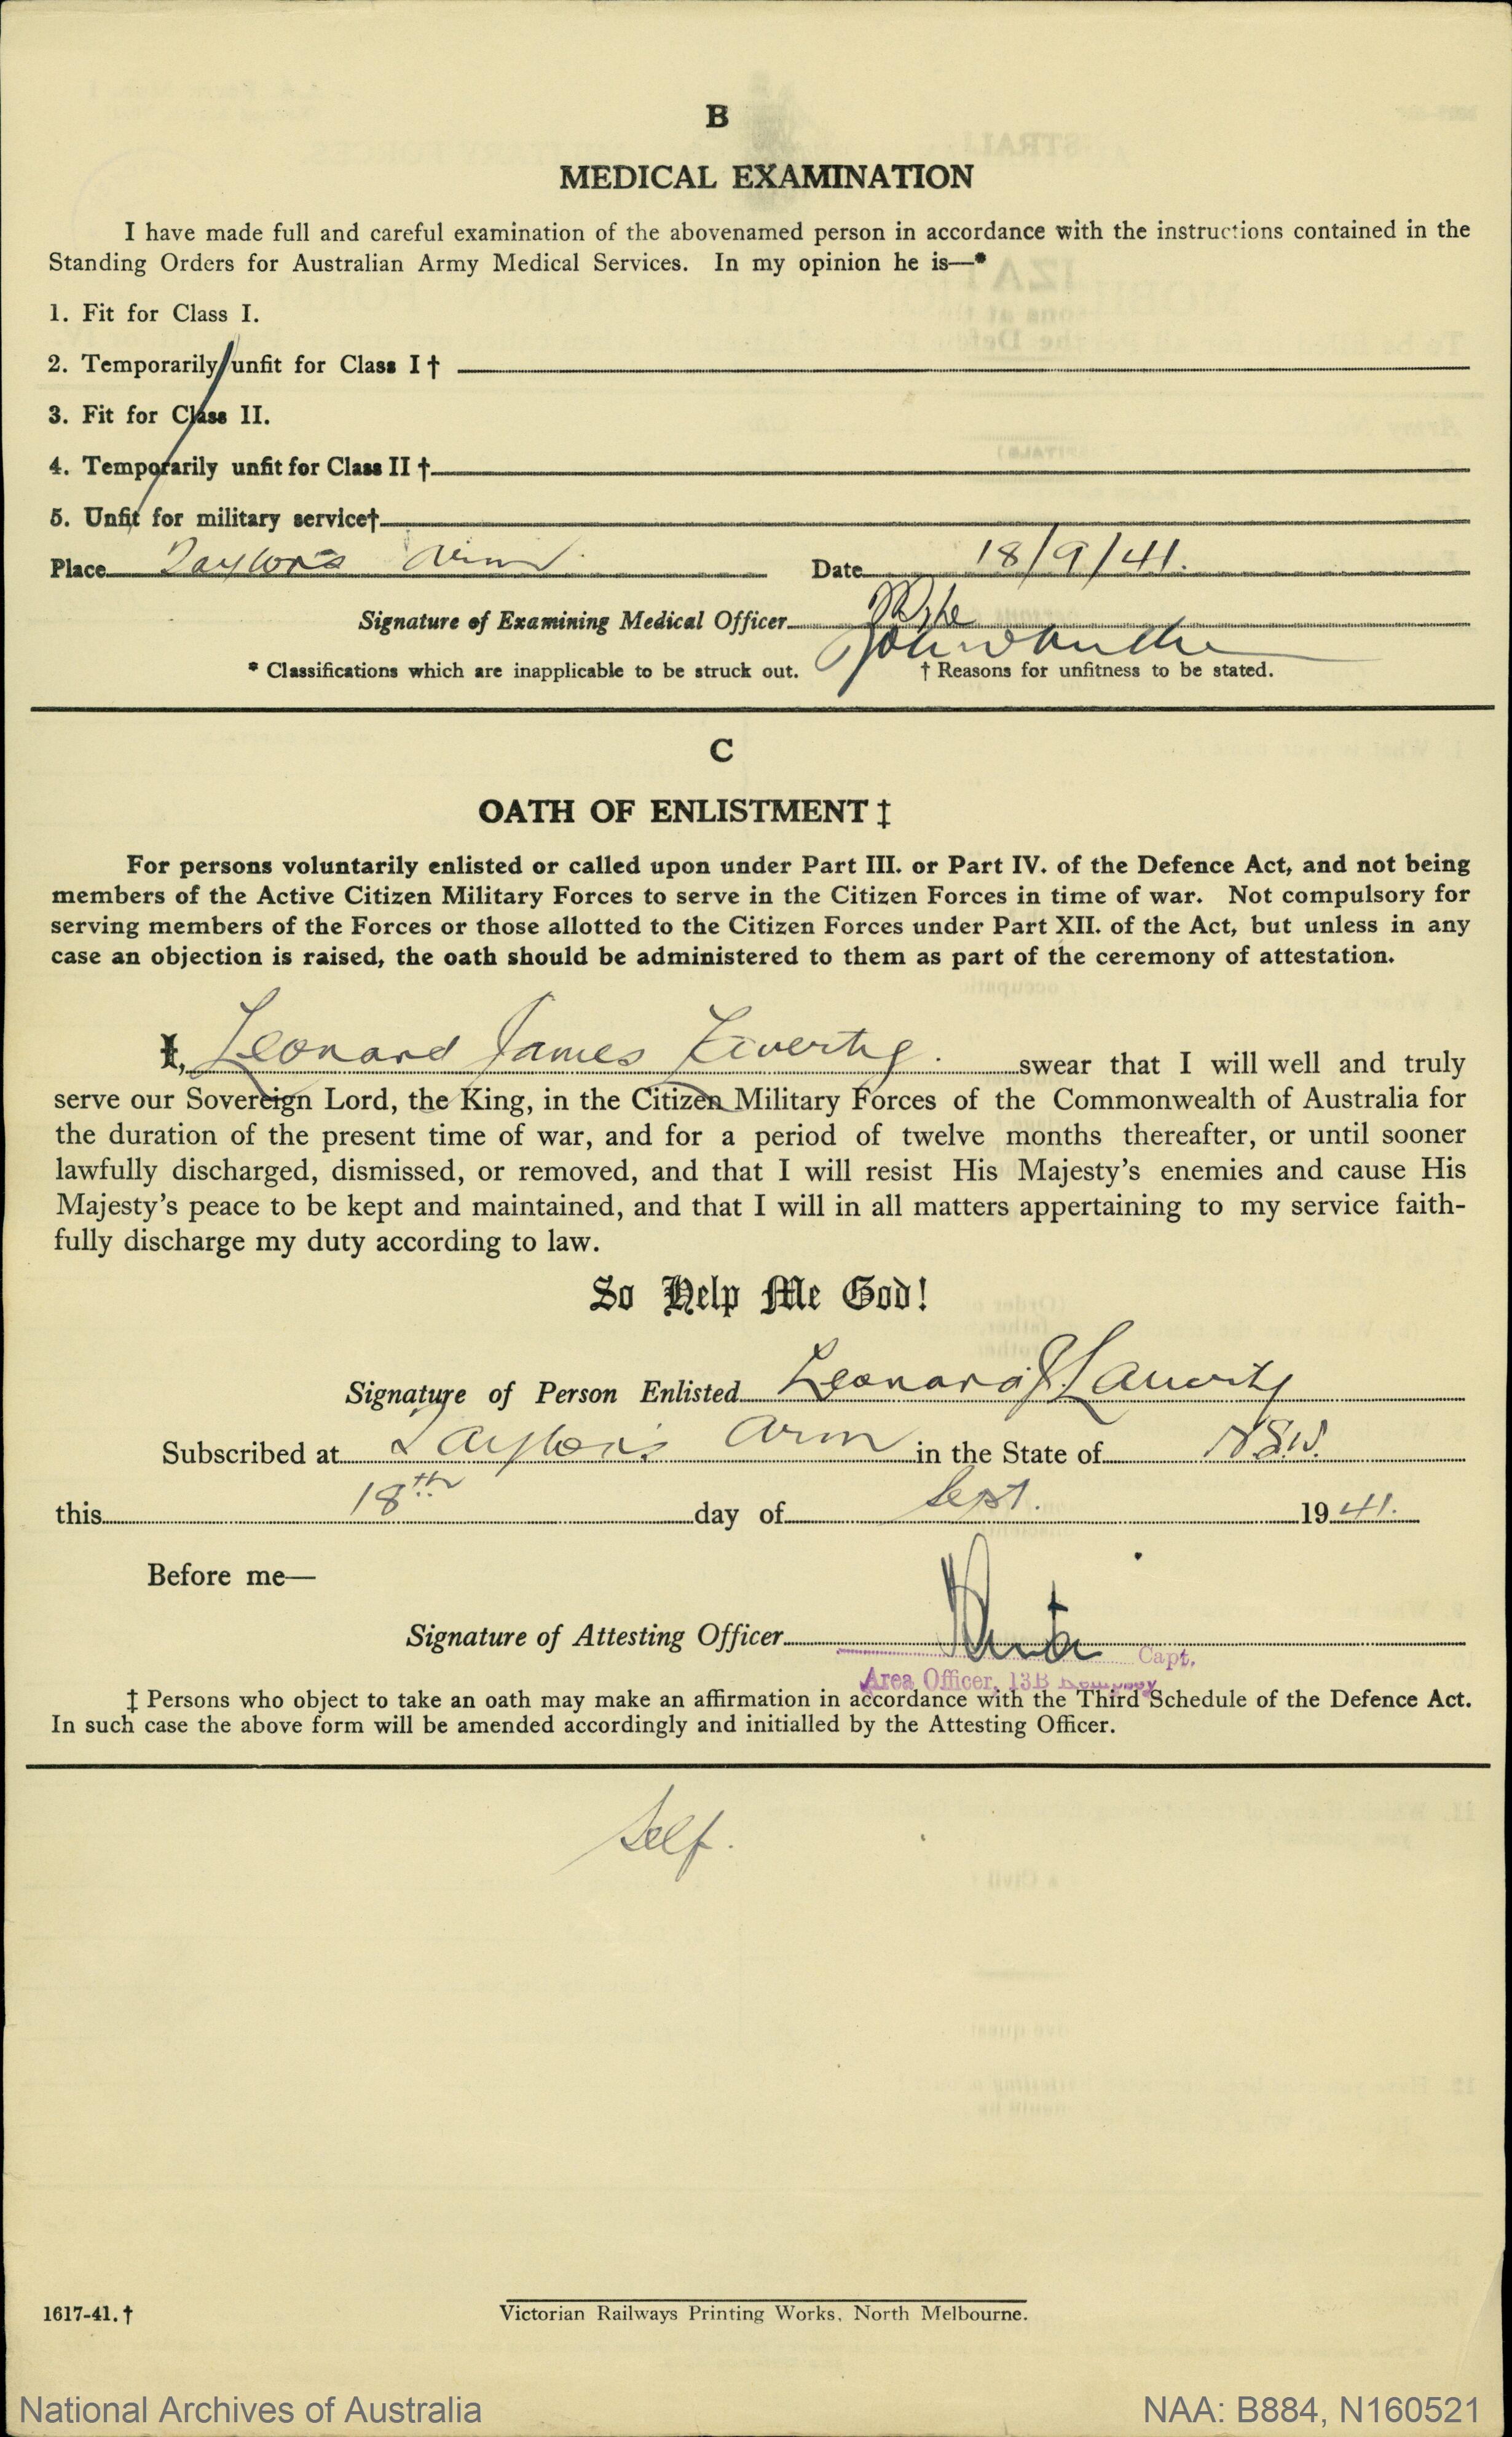 B
MEDICAL EXAMINATION
I have made full and careful examination of the abovenamed person in accordance with the instructions contained in the
Standing Orders for Australian Army Medical Services. In my opinion he is—*
1. Fit for Class I.
2. Temporarily unfit for Class I †
3. Fit for Class II.
4. Temporarily unfit for Class II †
5. Unfit for military service†
Place Taylors Arm Date 18/9/41.
Signature of Examining Medical Officer
* Classifications which are inapplicable to be struck out. † Reasons for unfitness to be stated.
C
OATH OF ENLISTMENT ‡
For persons voluntarily enlisted or called upon under Part III. or Part IV. of the Defence Act, and not being
members of the Active Citizen Military Forces to serve in the Citizen Forces in time of war. Not compulsory for
serving members of the Forces or those allotted to the Citizen Forces under Part XII. of the Act, but unless in any
case an objection is raised, the oath should be administered to them as part of the ceremony of attestation.
I, Leonard James swear that I will well and truly
serve our Sovereign Lord, the King, in the Citizen Military Forces of the Commonwealth of Australia for
the duration of the present time of war, and for a period of twelve months thereafter, or until sooner
lawfully discharged, dismissed, or removed, and that I will resist His Majesty's enemies and cause His
Majesty's peace to be kept and maintained, and that I will in all matters appertaining to my service faith-
fully discharge my duty according to law.
So Help Me God!
Signature of Person Enlisted Leonard J
Subscribed at Taylors Arm in the State of N.S.W.
this 18th day of Sept. 1941.
Before me—
Signature of Attesting Officer
Capt.
Area Officer, 13B Kempsey
‡ Persons who object to take an oath may make an affirmation in accordance with the Third Schedule of the Defence Act.
In such case the above form will be amended accordingly and initialled by the Attesting Officer.
Self.
1617-41.†
Victorian Railways Printing Works, North Melbourne.
National Archives of Australia
NAA: B884, N160521